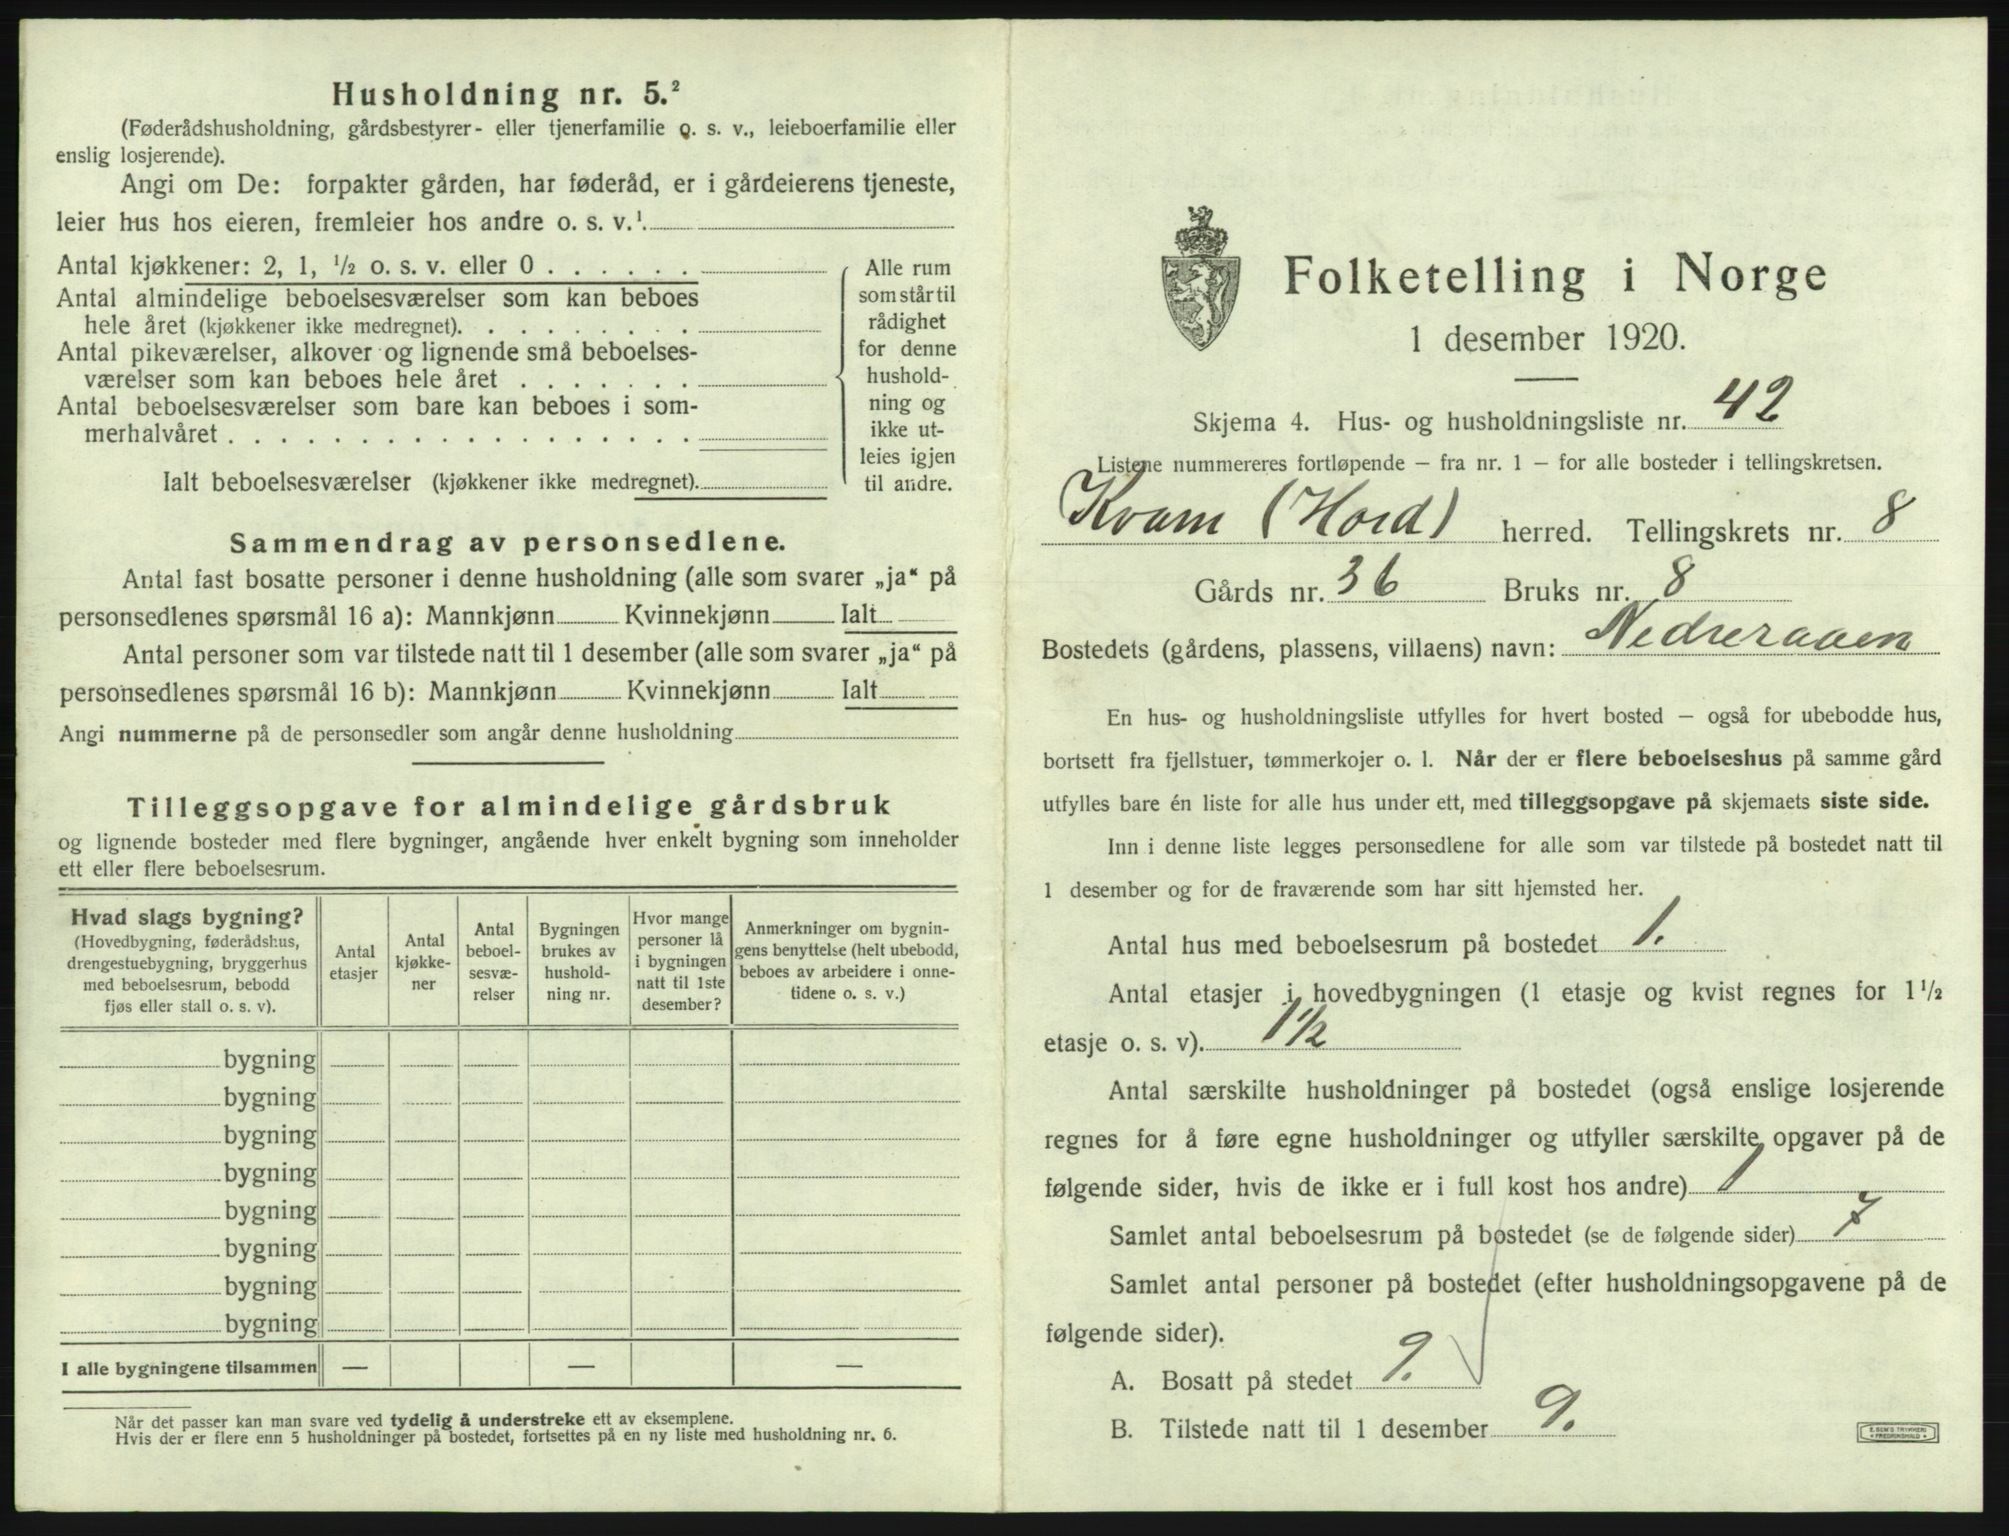 Husholdning nr. 5.²
(Føderådshusholdning, gårdsbestyrer- eller tjenerfamilie o. s. v., leieboerfamilie eller
enslig losjerende).
Angi om De: forpakter gården, har føderåd, er i gårdeierens tjeneste,
leier hus hos eieren, fremleier hos andre o. s. v.¹
Antal kjøkkener: 2, 1, ½ o. s. v. eller 0 . . . . . .
Antal almindelige beboelsesværelser som kan beboes
hele året (kjøkkener ikke medregnet). . . . . . . . .
Antal pikeværelser, alkover og lignende små beboelses-
værelser som kan beboes hele året . . . . . . .
Antal beboelsesværelser som bare kan beboes i som-
merhalvåret . . . . . . . . . . . . . . . . . .
Ialt beboelsesværelser (kjøkkener ikke medregnet).
Alle rum
som står til
rådighet
for denne
hushold-
ning og
ikke ut-
leies igjen
til andre.
Sammendrag av personsedlene.
Antal fast bosatte personer i denne husholdning (alle som svarer „ja“ på
personsedlenes spørsmål 16 a): Mannkjønn Kvinnekjønn Ialt
Antal personer som var tilstede natt til 1 desember (alle som svarer „ja“ på
personsedlenes spørsmål 16 b): Mannkjønn Kvinnekjønn Ialt
Angi nummerne på de personsedler som angår denne husholdning
Tilleggsopgave for almindelige gårdsbruk
og lignende bosteder med flere bygninger, angående hver enkelt bygning som inneholder
ett eller flere beboelsesrum.
Hvad slags bygning?
(Hovedbygning, føderådshus,
drengestuebygning, bryggerhus
med beboelsesrum, bebodd
fjøs eller stall o. s. v).
Antal
etasjer
Antal
kjøkke-
ner
Antal
beboel-
sesvæ-
relser
Bygningen
brukes av
hushold-
ning nr.
Hvor mange
personer lå
i bygningen
natt til 1ste
desember?
Anmerkninger om bygnin-
gens benyttelse (helt ubebodd,
beboes av arbeidere i onne-
tidene o. s. v.)
bygning
bygning
bygning
bygning
bygning
bygning
bygning
bygning
I alle bygningene tilsammen — — —
Når det passer kan man svare ved tydelig å understreke ett av eksemplene.
Hvis der er flere enn 5 husholdninger på bostedet, fortsettes på en ny liste med husholdning nr. 6.
Folketelling i Norge
1 desember 1920.
Skjema 4. Hus- og husholdningsliste nr. 42
Listene nummereres fortløpende — fra nr. 1 — for alle bosteder i tellingskretsen.
Kvam (Hord) herred. Tellingskrets nr. 8
Gårds nr. 36 Bruks nr. 8
Bostedets (gårdens, plassens, villaens) navn: Nedreraaen
En hus- og husholdningsliste utfylles for hvert bosted — også for ubebodde hus,
bortsett fra fjellstuer, tømmerkojer o. l. Når der er flere beboelseshus på samme gård
utfylles bare én liste for alle hus under ett, med tilleggsopgave på skjemaets siste side.
Inn i denne liste legges personsedlene for alle som var tilstede på bostedet natt til
1 desember og for de fraværende som har sitt hjemsted her.
Antal hus med beboelsesrum på bostedet 1.
Antal etasjer i hovedbygningen (1 etasje og kvist regnes for 1½
etasje o. s. v). 1½
Antal særskilte husholdninger på bostedet (også enslige losjerende
regnes for å føre egne husholdninger og utfyller særskilte opgaver på de
følgende sider, hvis de ikke er i full kost hos andre) 1
Samlet antal beboelsesrum på bostedet (se de følgende sider) 7
Samlet antal personer på bostedet (efter husholdningsopgavene på de
følgende sider).
A. Bosatt på stedet 9.
B. Tilstede natt til 1 desember 9.
E. SEM'S TRYKKERI
• FREDRIKSHALD •